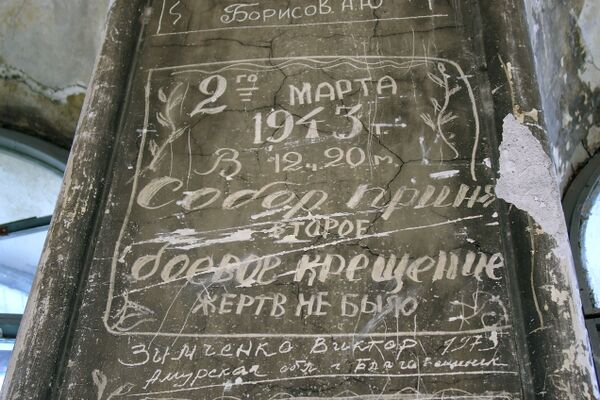 Борисов. А.Ю
2го МАРТА
1943 г.
В 12 ч. 20 м.
Собор приня
ВТОРОЕ
боевое крещение
ЖЕРТВ НЕ БЫЛО
Зимченко Виктор 197
Амурская обл г. Благовещенск